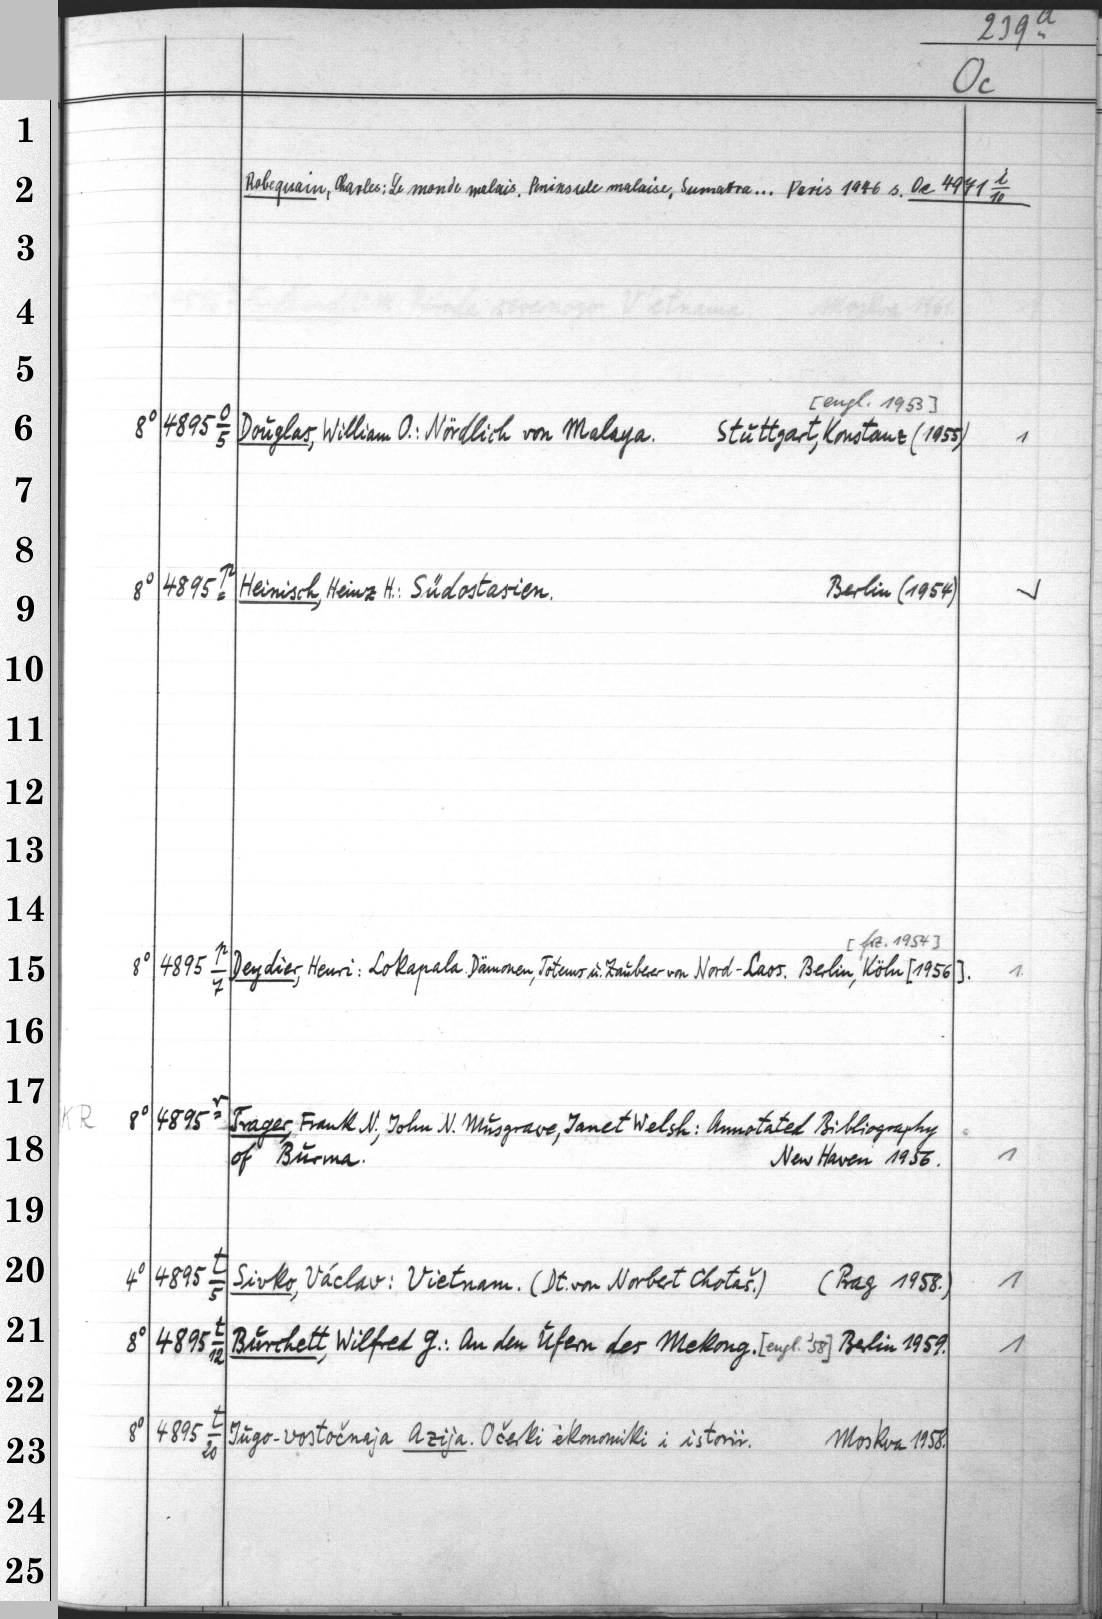 239a
Oc
1
2 Robequain, Charles: Le monde malais. Peninsule malaise, Sumatra... Paris 1946 s. Oc 4971 i/10
3
4
5
[engl. 1953]
6 8° 4895 o/5 Douglas, William O.: Nördlich von Malaya. Stuttgart, Konstanz (1955) 1
7
8
9 8° 4895 p Heinisch, Heinz H.: Südostasien. Berlin (1954) ✓
10
11
12
13
14
[frz. 1954]
15 8° 4895 p/7 Deydier, Henri: Lokapala. Dämonen, Totems u. Zauberer von Nord-Laos. Berlin, Köln [1956]. 1
16
17
KR 8° 4895 r Trager, Frank N., John N. Musgrave, Janet Welsh: Annotated Bibliography
18 of Burma. New Haven 1956. 1
19
20 4° 4895 t/5 Sivko, Václav: Vietnam. (Dt. von Norbert Chotaš.) (Prag 1958.) 1
21 8° 4895 t/12 Burchett, Wilfred G.: An den Ufern des Mekong. [engl. '58] Berlin 1959. 1
22
23 8° 4895 t/20 Jugo-vostočnaja Azija. Očerki ėkonomiki i istorii. Moskva 1958.
24
25